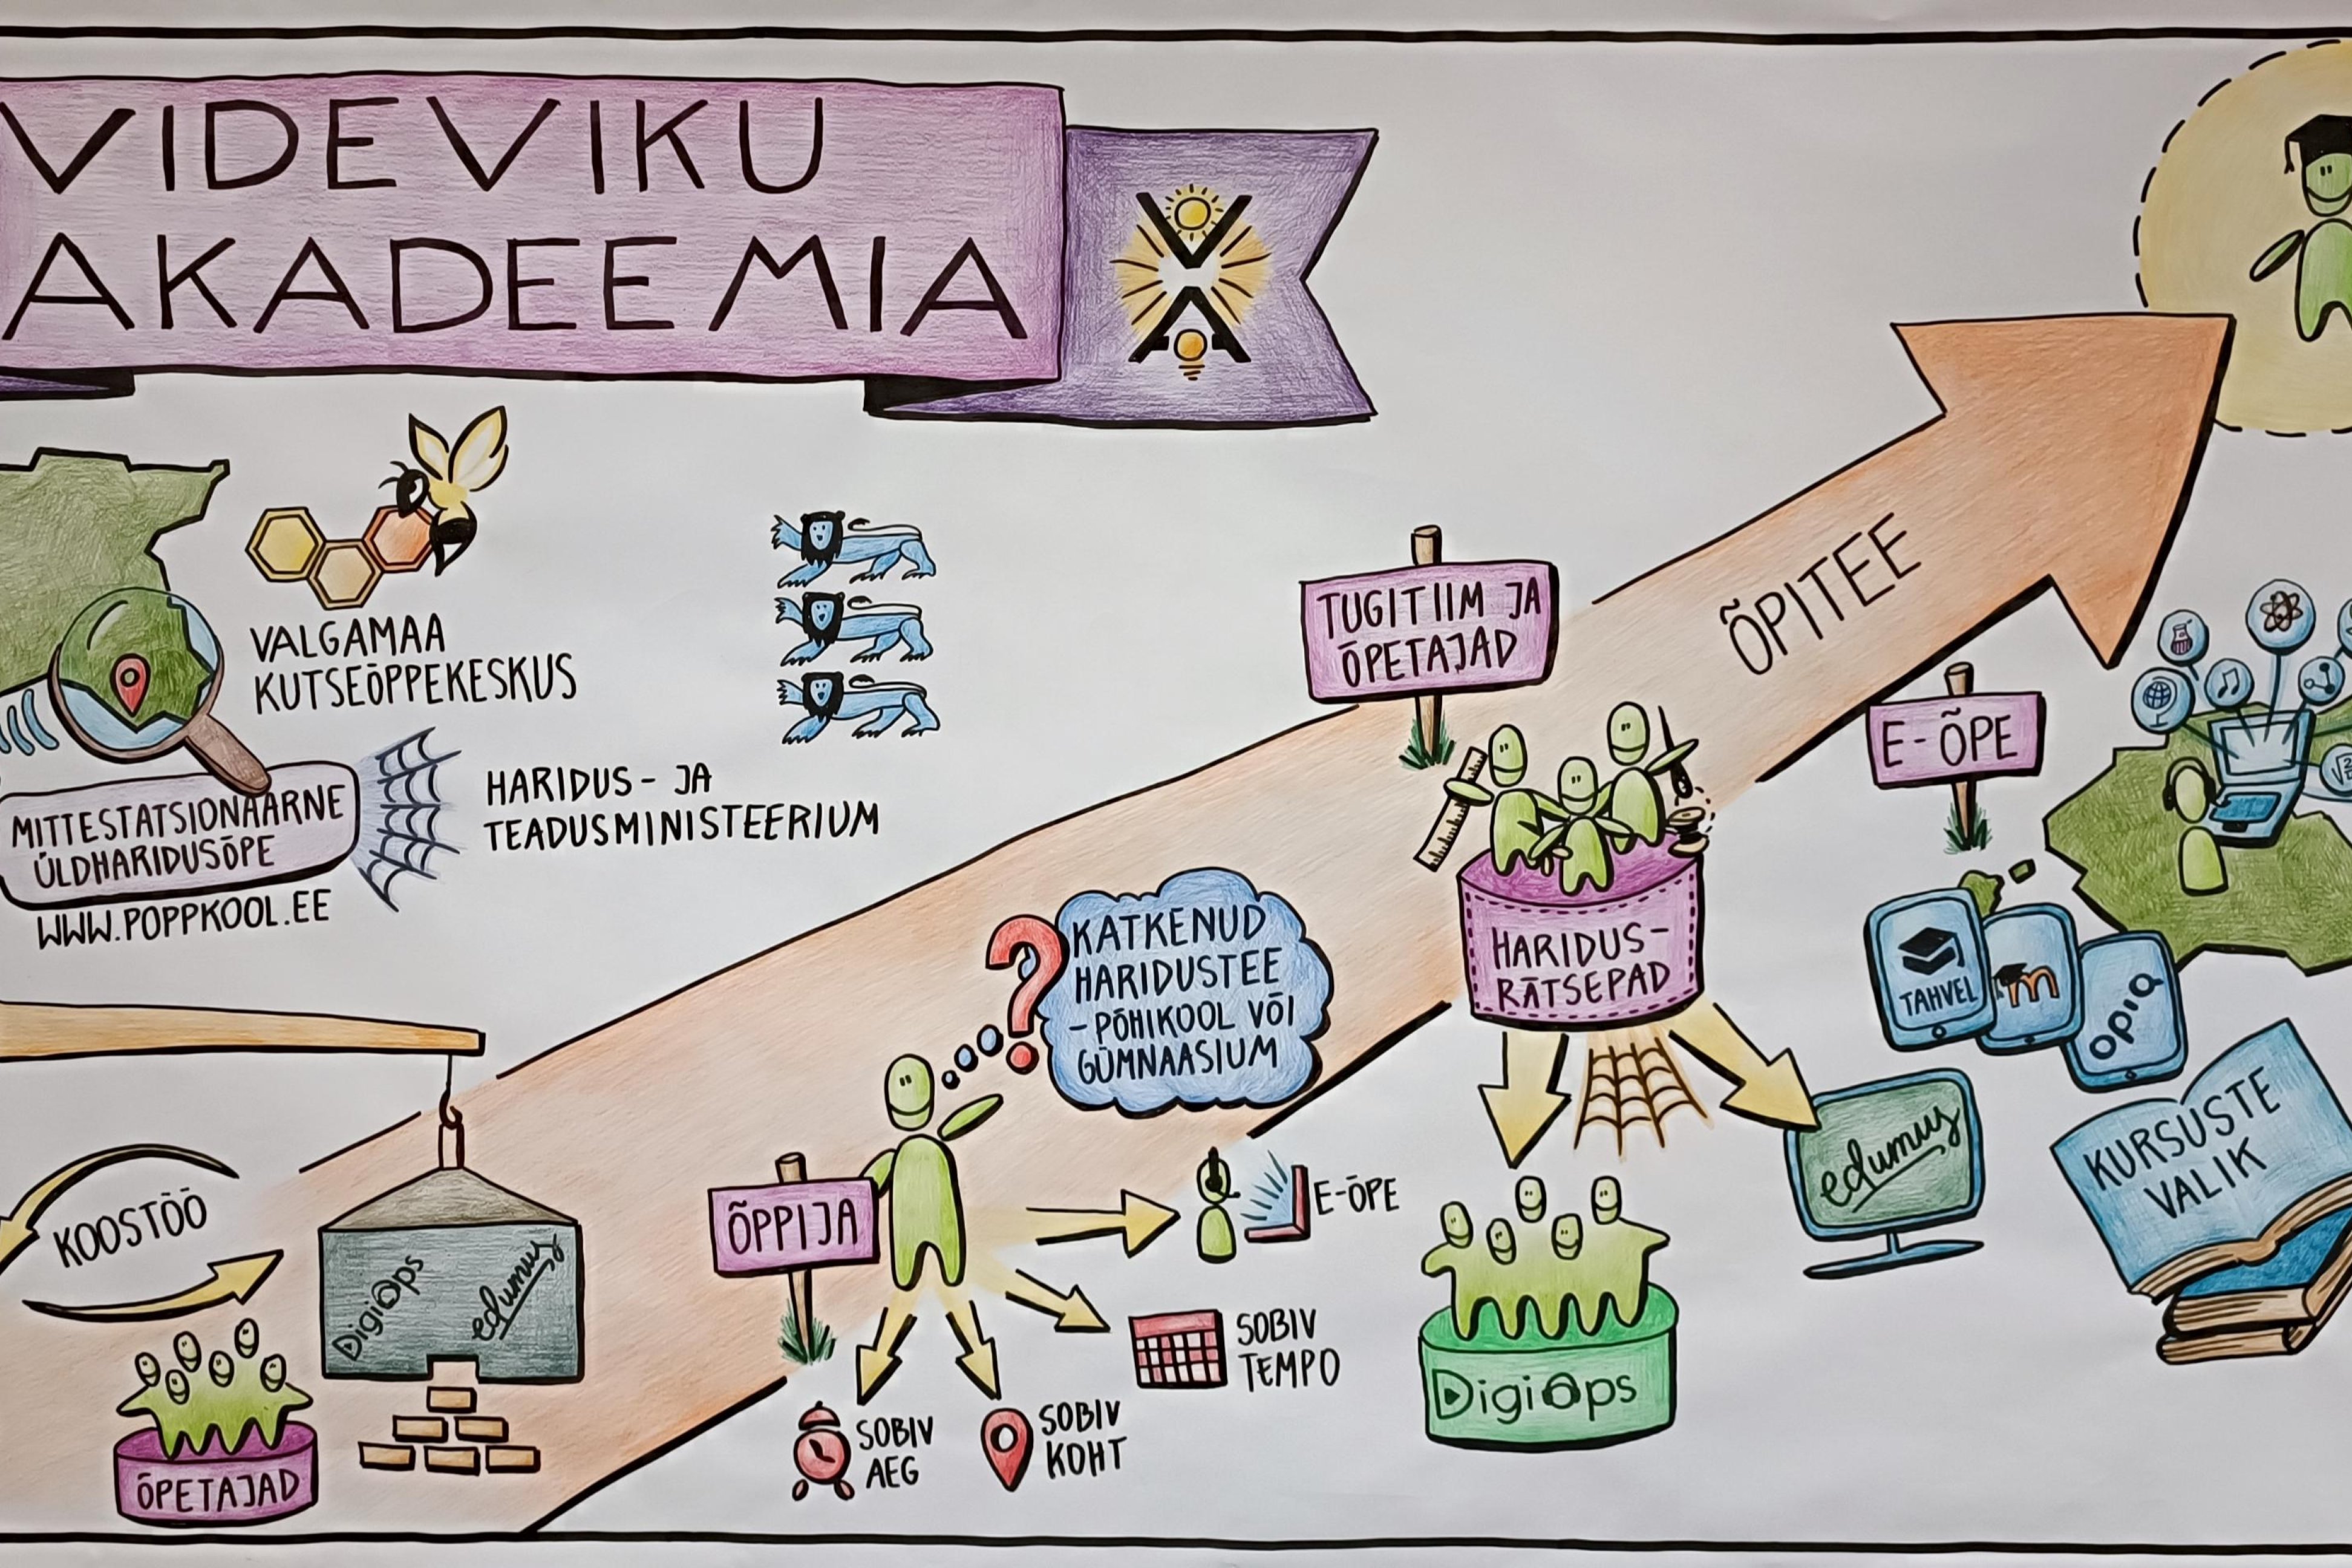 VIDEVIKU
AKADEEMIA
VALGAMAA
KUTSEÕPPEKESKUS
MITTESTATSIONAARNE
ÜLDHARIDUSÕPE
WWW.POPPKOOL.EE
HARIDUS- JA
TEADUSMINISTEERIUM
KOOSTÖÖ
ÕPETAJAD
DigiÕps
edumus
ÕPPIJA
KATKENUD
HARIDUSTEE
- PÕHIKOOL VÕI
GÜMNAASIUM
E-ÕPE
SOBIV
TEMPO
SOBIV
KOHT
SOBIV
AEG
TUGITIIM JA
ÕPETAJAD
HARIDUS-
RÄTSEPAD
DigiÕps
edumus
ÕPITEE
E-ÕPE
TAHVEL
m
opiq
KURSUSTE
VALIK
√2